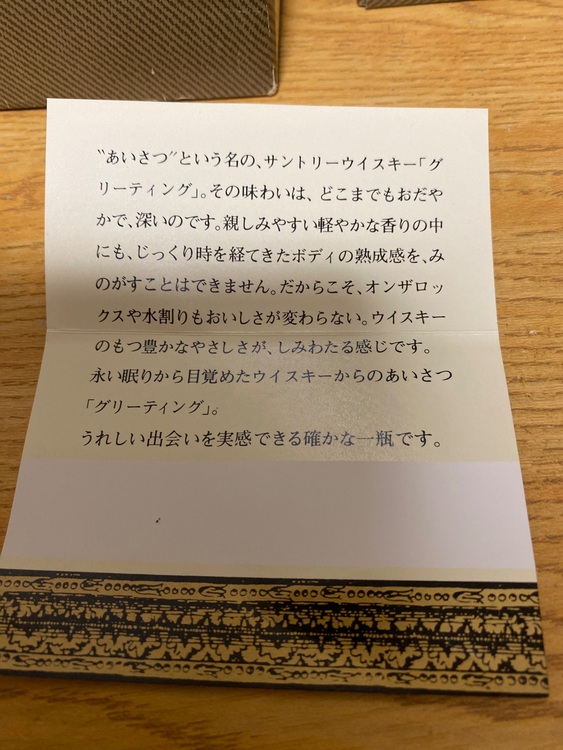 “あいさつ”という名の、サントリーウイスキー「グ
リーティング」。その味わいは、どこまでもおだや
かで、深いのです。親しみやすい軽やかな香りの中
にも、じっくり時を経てきたボディの熟成感を、み
のがすことはできません。だからこそ、オンザロッ
クスや水割りもおいしさが変わらない。ウイスキー
のもつ豊かなやさしさが、しみわたる感じです。
永い眠りから目覚めたウイスキーからのあいさつ
「グリーティング」。
うれしい出会いを実感できる確かな一瓶です。